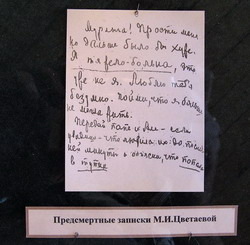 Мурлыга! Прости меня
но дальше было бы хуже.
Я тяжело-больна, это
уже не я. Люблю тебя
безумно. Пойми, что я больше
не могла жить.
Передай папе и Але - если
увидишь - что любила их до послед-
ней минуты и объясни, что попала
в тупик
Предсмертные записки М.И.Цветаевой